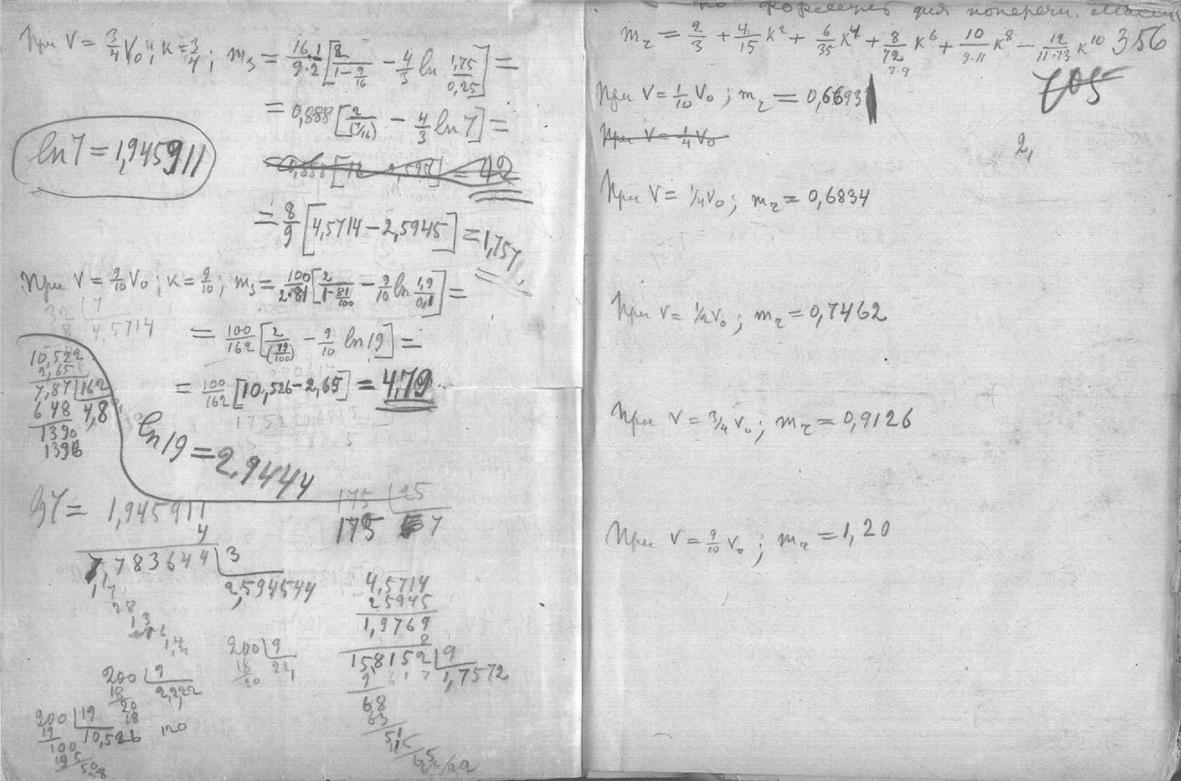 При V = 3/4 V₀; κ = 3/4; m₃ = 16·1/9·2 [2/(1 − 9/16) − 4/3 ln 1,75/0,25] =
= 0,888 [2/(7/16) − 4/3 ln 7] =
ln 7 = 1,945911
= 8/9 [4,5714 − 2,5945] = 1,757,
При V = 9/10 V₀; κ = 9/10; m₃ = 100/2·81 [2/(1 − 81/100) − 9/10 ln 1,9/0,1] =
32 | 7
4,5714
= 100/162 [2/(19/100) − 9/10 ln 19] =
= 100/162 [10,526 − 2,65] = 4,79
10,522
2,65
7,87 | 162
648 4,8
1390
1396
ln 19 = 2,9444
lg 7 = 1,945911
4
7,783644 | 3
2,594544
175 | 25
175 7
4,5714
25945
1,9769
8
158152 | 9
1,7572
68
63
200 | 9
18 22,
20
200 | 9
18 2,222
20
18
200 | 19
19 10,526
100
по формуле для попереч. массы
m₂ = 2/3 + 4/15 κ² + 6/35 κ⁴ + 8/72 κ⁶ + 10/9·11 κ⁸ − 12/11·13 κ¹⁰ 356
7·9
705
При V = 1/10 V₀; m₂ = 0,6693
При V = 1/4 V₀
2,
При V = 1/4 V₀; m₂ = 0,6834
При V = 1/2 V₀; m₂ = 0,7462
При V = 3/4 V₀; m₂ = 0,9126
При V = 9/10 V₀; m₂ = 1,20